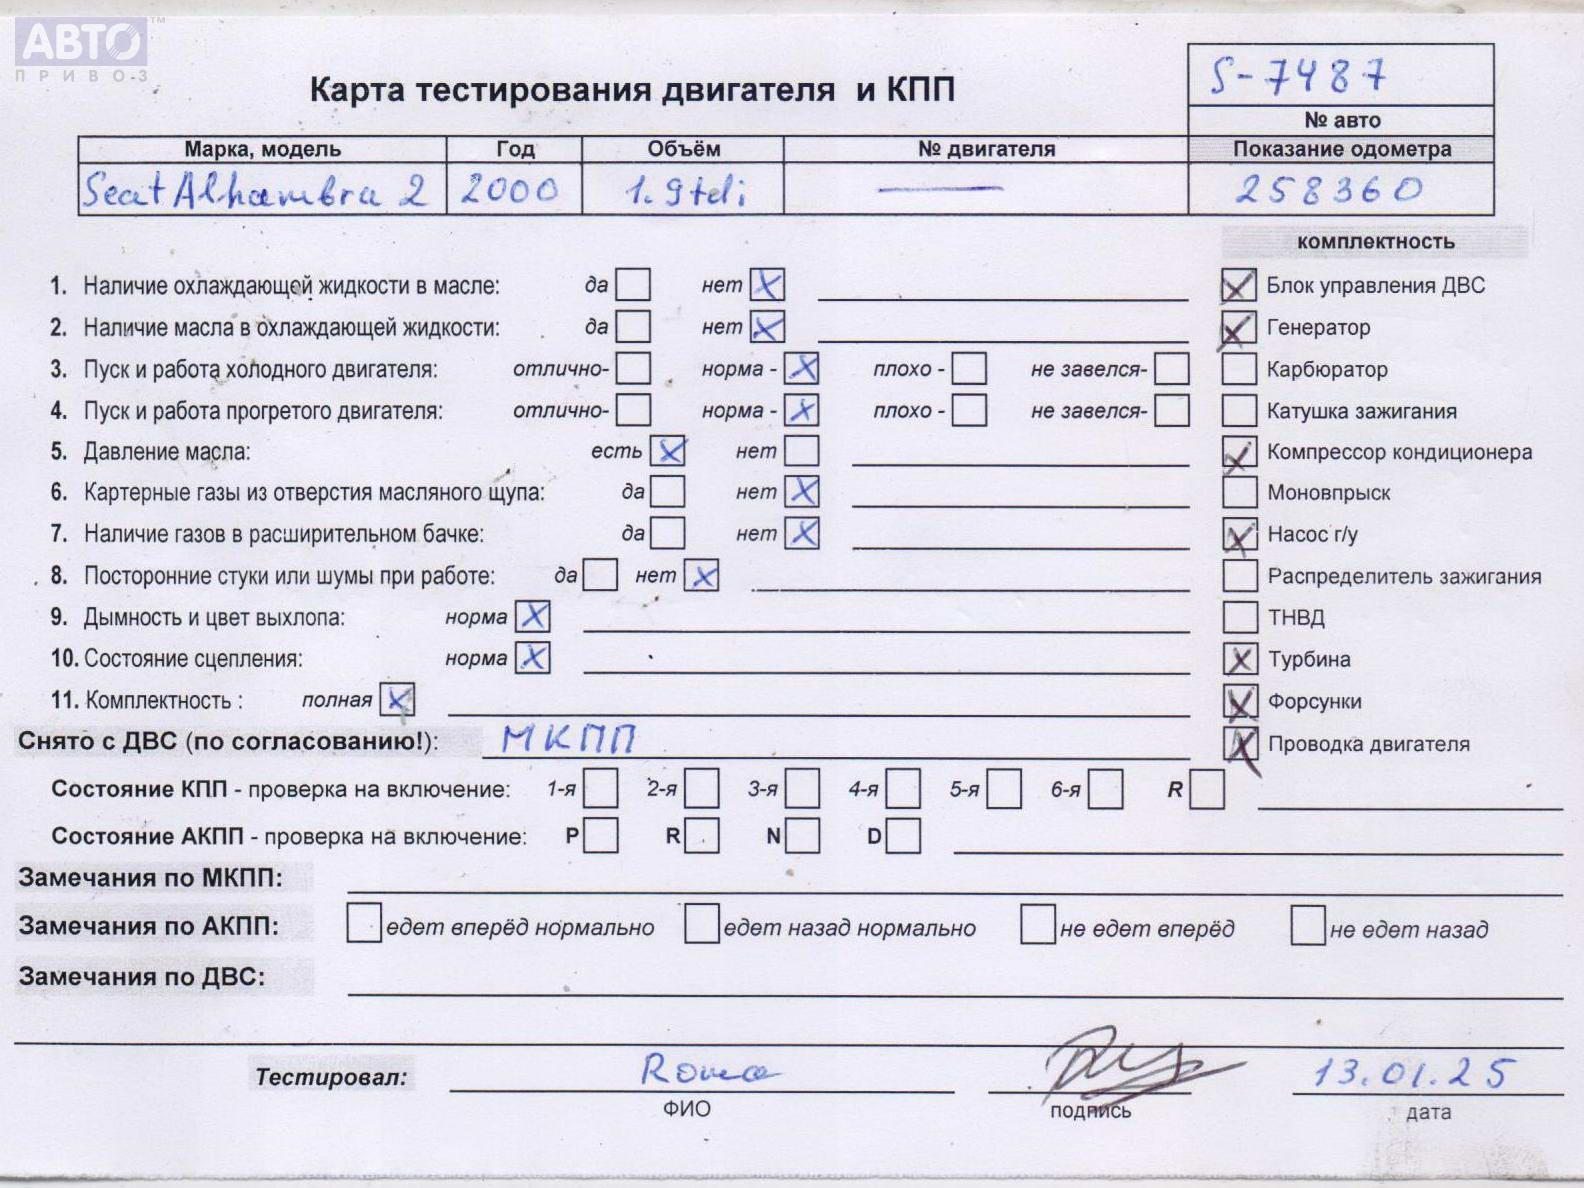 АВТО™
ПРИВОЗ
S-7487
Карта тестирования двигателя и КПП
№ авто
Марка, модель Год Объём № двигателя Показание одометра
Seat Alhambra 2 2000 1.9tdi — 258360
комплектность
1. Наличие охлаждающей жидкости в масле: да нет X X Блок управления ДВС
2. Наличие масла в охлаждающей жидкости: да нет X X Генератор
3. Пуск и работа холодного двигателя: отлично- норма - X плохо - не завелся- Карбюратор
4. Пуск и работа прогретого двигателя: отлично- норма - X плохо - не завелся- Катушка зажигания
5. Давление масла: есть X нет X Компрессор кондиционера
6. Картерные газы из отверстия масляного щупа: да нет X Моновпрыск
7. Наличие газов в расширительном бачке: да нет X X Насос г/у
8. Посторонние стуки или шумы при работе: да нет X Распределитель зажигания
9. Дымность и цвет выхлопа: норма X ТНВД
10. Состояние сцепления: норма X X Турбина
11. Комплектность : полная X X Форсунки
Снято с ДВС (по согласованию!): МКПП X Проводка двигателя
Состояние КПП - проверка на включение: 1-я 2-я 3-я 4-я 5-я 6-я R
Состояние АКПП - проверка на включение: P R N D
Замечания по МКПП:
Замечания по АКПП: едет вперёд нормально едет назад нормально не едет вперёд не едет назад
Замечания по ДВС:
Тестировал: Roma 13.01.25
ФИО подпись дата